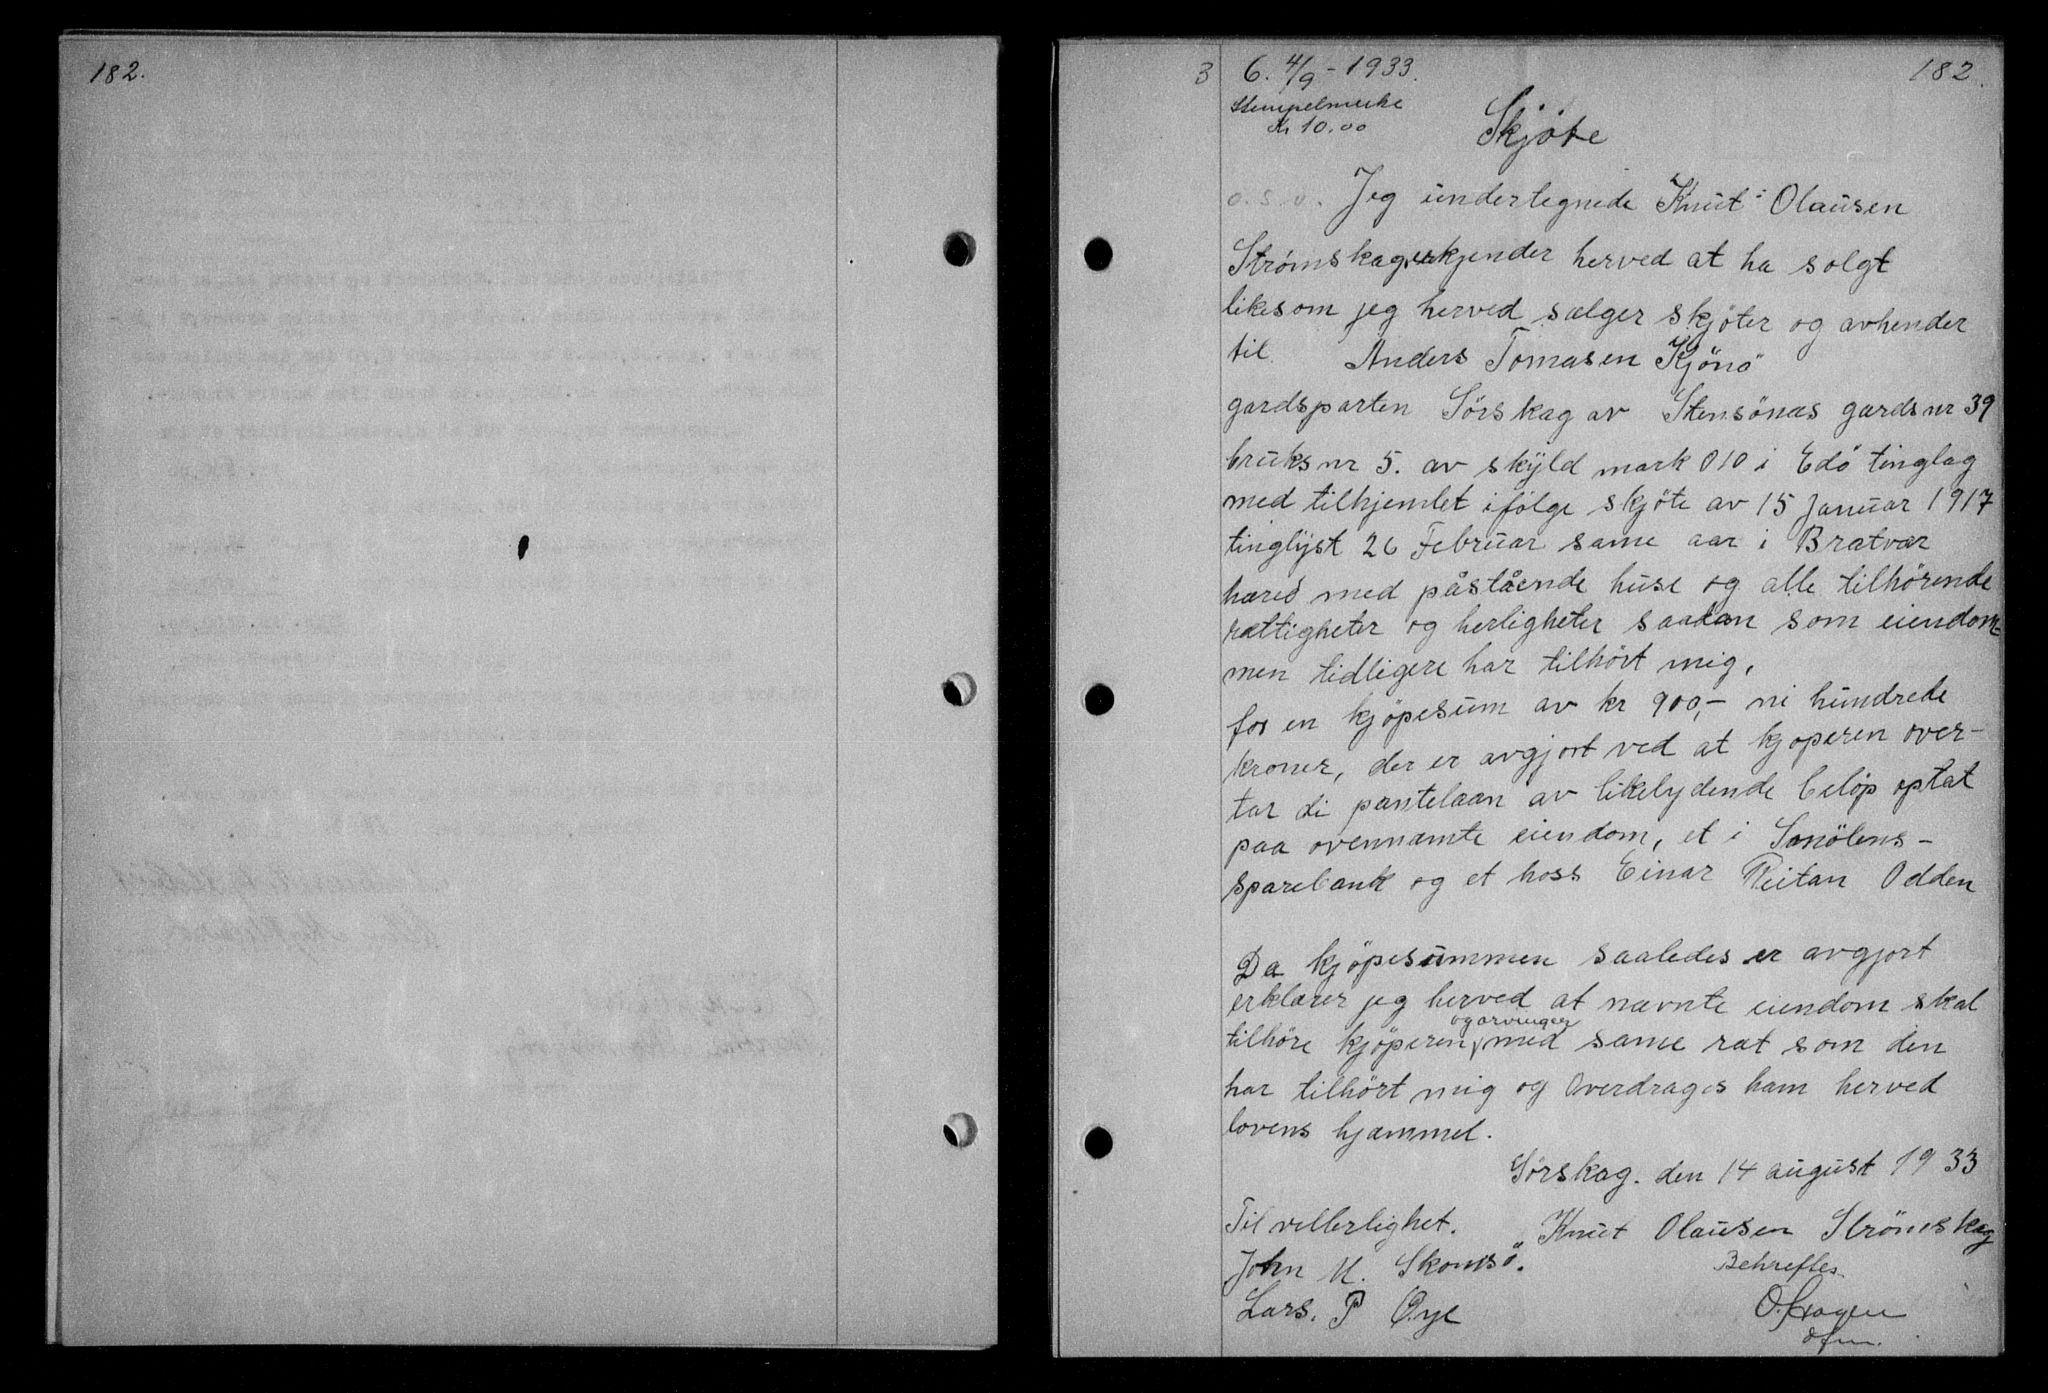 182.
3 6. 4/9 - 1933. 182.
Stempelmerke
Kr 10.00
Skjöte
o. s. v. Jeg undertegnede Knut Olausen
Strömskag erkjender herved at ha solgt
likesom jeg herved sælger skjöter og avhender
til Anders Tomasen Kjönö
gardsparten Sörskag av Stensönæs gards nr 39
bruks nr 5. av skyld mark 010 i Edö tinglag
med tilhjemlet ifölge skjöte av 15 Januar 1917
tinglyst 26 Februar same aar i Bratvær
hered med påstående huse og alle tilhörende
rættigheter og herligheter saadan som eiendom-
men tidligere har tilhört mig,
for en kjöpesum av kr 900,- ni hundrede
kroner, der er avgjort ved at kjoperen over-
tar di pantelaan av likelydende belöp optat
paa ovennamte eiendom, et i Smölens-
sparebank og et hoss Einar Reitan Odden
Da kjöpesummen saaledes er avgjort
erklærer jeg herved at nævnte eiendom skal
tilhöre kjöperen og arvinger med same rat som den
har tilhört mig og Overdrages ham herved
lovens hjæmmel.
Sörskag. den 14 august 1933
Til vitterlighet. Knut Olausen Strömskag
John M. Skomsö. Bekreftes.
Lars. P Øye